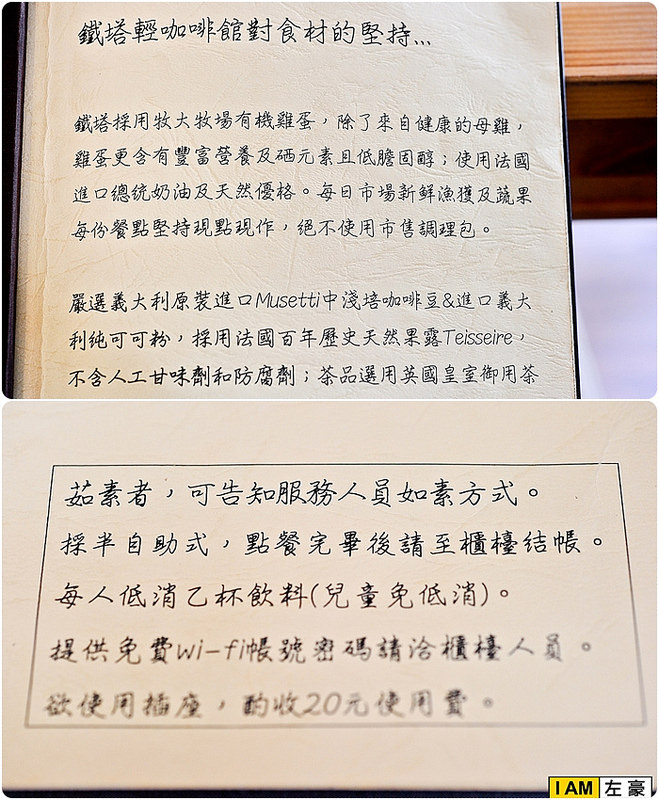 鐵塔輕咖啡館對食材的堅持...
鐵塔採用牧大牧場有機雞蛋，除了來自健康的母雞，
雞蛋更含有豐富營養及硒元素且低膽固醇；使用法國
進口總統奶油及天然優格。每日市場新鮮漁獲及蔬果
每份餐點堅持現點現作，絕不使用市售調理包。
嚴選義大利原裝進口Musetti中淺培咖啡豆&進口義大
利純可可粉，採用法國百年歷史天然果露Teisseire，
不含人工甘味劑和防腐劑；茶品選用英國皇室御用茶
茹素者，可告知服務人員如素方式。
採半自助式，點餐完畢後請至櫃檯結帳。
每人低消乙杯飲料(兒童免低消)。
提供免費wi-fi帳號密碼請洽櫃檯人員。
欲使用插座，酌收20元使用費。
I AM 左豪